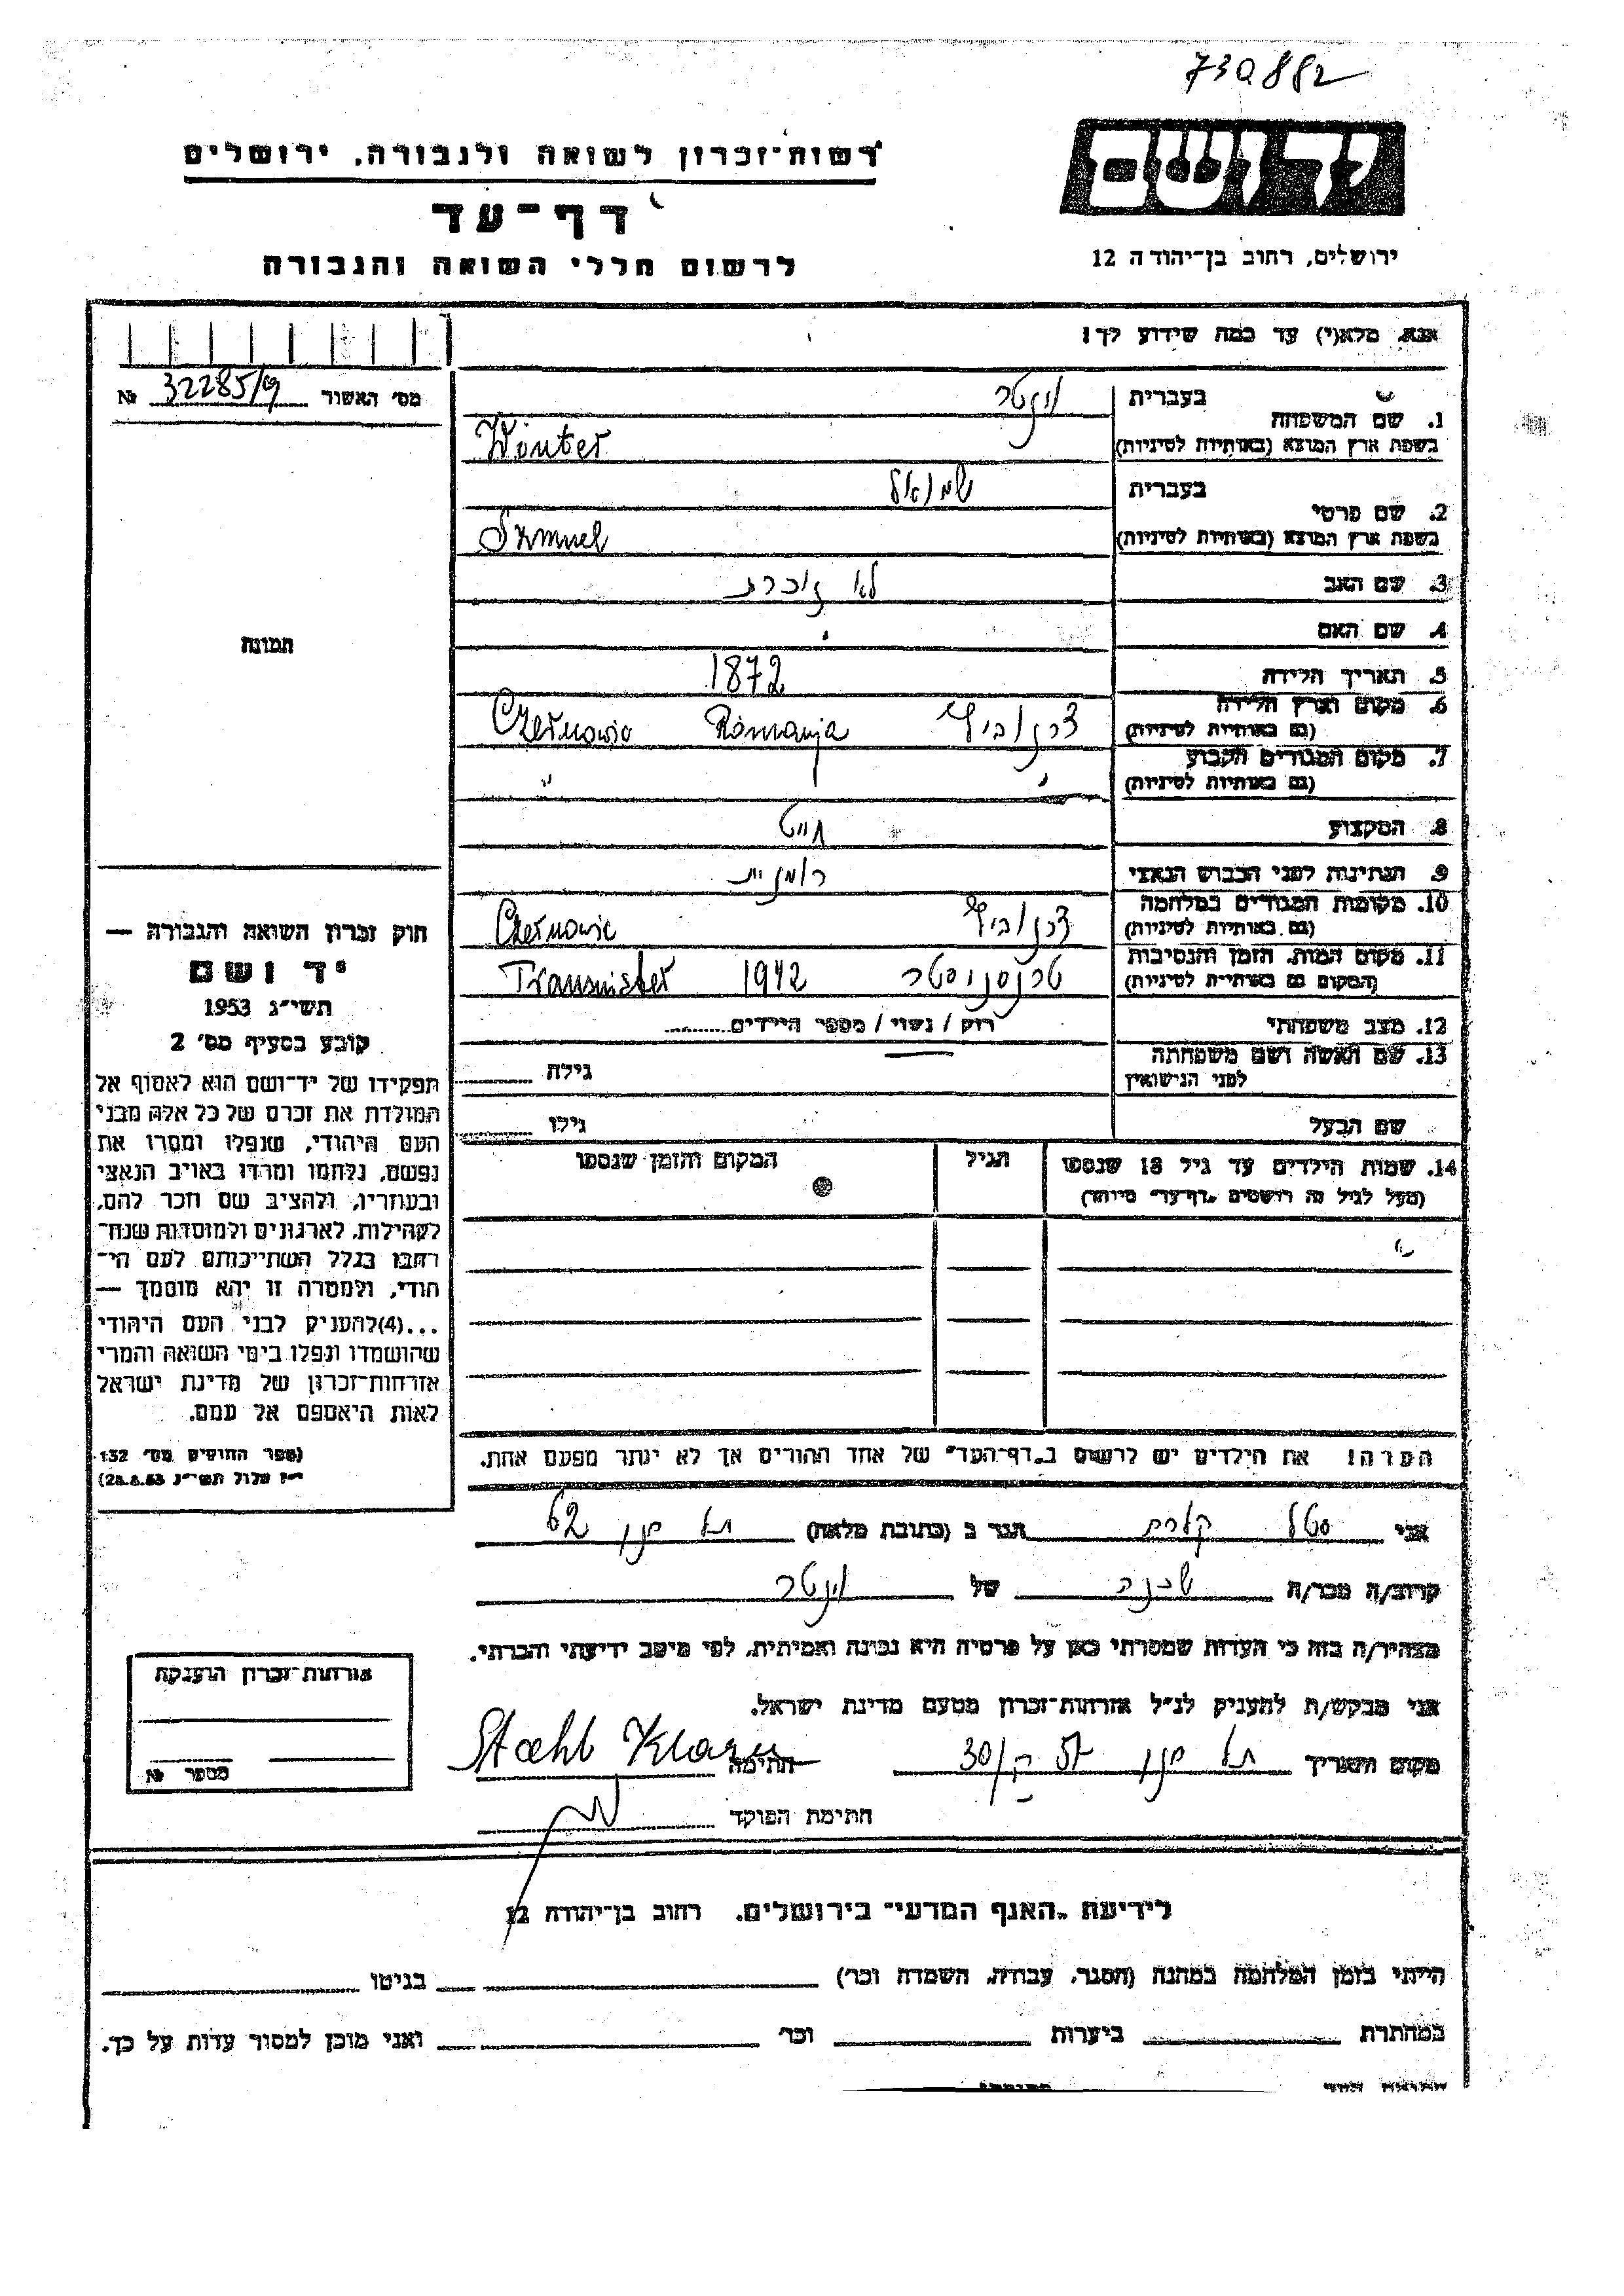 730882
יד ושם
רשות־זכרון לשואה ולגבורה, ירושלים
דף־עד
לרשום חללי השואה והגבורה
ירושלים, רחוב בן־יהודה 12
אנא, מלא(י) עד כמה שידוע לך!
מס׳ האשור 32285/9 №
תמונה
1. שם המשפחה
בעברית וינטר
בשפת ארץ המוצא (באותיות לטיניות) Winter
2. שם פרטי
בעברית שמואל
בשפת ארץ המוצא (באותיות לטיניות) Szmuel
3. שם האב לא זוכרת
4. שם האם
5. תאריך הלידה 1872
6. מקום וארץ הלידה
(גם באותיות לטיניות) Romanja Czernowic
7. מקום המגורים הקבוע
(גם באותיות לטיניות) " "
8. המקצוע חייט
9. הנתינות לפני הכבוש הנאצי רומנית
10. מקומות המגורים במלחמה
(גם באותיות לטיניות) Czernowic
11. מקום המות, הזמן והנסיבות
(המקום גם באותיות לטיניות) טרנסניסטר 1942 Transnister
12. מצב משפחתי רוק / נשוי / מספר הילדים
13. שם האשה ושם משפחתה
לפני הנישואין גילה
שם הבעל גילו
14. שמות הילדים עד גיל 18 שנספו הגיל המקום והזמן שנספו
(מעל לגיל זה רושמים „דף־עד״ מיוחד)
הערה! את הילדים יש לרשום ב„דף־העד״ של אחד ההורים אך לא יותר מפעם אחת.
חוק זכרון השואה והגבורה —
יד ושם
תשי״ג 1953
קובע בסעיף מס׳ 2
תפקידו של יד־ושם הוא לאסוף אל
המולדת את זכרם של כל אלה מבני
העם היהודי, שנפלו ומסרו את
נפשם, נלחמו ומרדו באויב הנאצי
ובעוזריו, ולהציב שם וזכר להם,
לקהילות, לארגונים ולמוסדות שנח־
רבו בגלל השתייכותם לעם הי־
הודי, ולמטרה זו יהא מוסמך —
...(4)להעניק לבני העם היהודי
שהושמדו ונפלו בימי השואה והמרי
אזרחות־זכרון של מדינת ישראל
לאות היאספם אל עמם.
(ספר החוקים מס׳ 132
י״ז אלול תשי״ג 28.8.53)
אני סטל קלרה הגר ב (כתובת מלאה) תל חנן 62
קרוב/ה מכר/ה שכנה של וינטר
מצהיר/ה בזה כי העדות שמסרתי כאן על פרטיה היא נכונה ואמיתית, לפי מיטב ידיעתי והכרתי.
אני מבקש/ת להעניק לנ״ל אזרחות־זכרון מטעם מדינת ישראל.
מקום ותאריך תל חנן חתימה Stahl Klara
חתימת הפוקד
אזרחות־זכרון הוענקה
מספר №
לידיעת „האגף המדעי״ בירושלים, רחוב בן־יהודה 12
הייתי בזמן המלחמה במחנה (הסגר, עבודה, השמדה וכו׳) בגיטו
במחתרת ביערות וכו׳ ואני מוכן למסור עדות על כך.